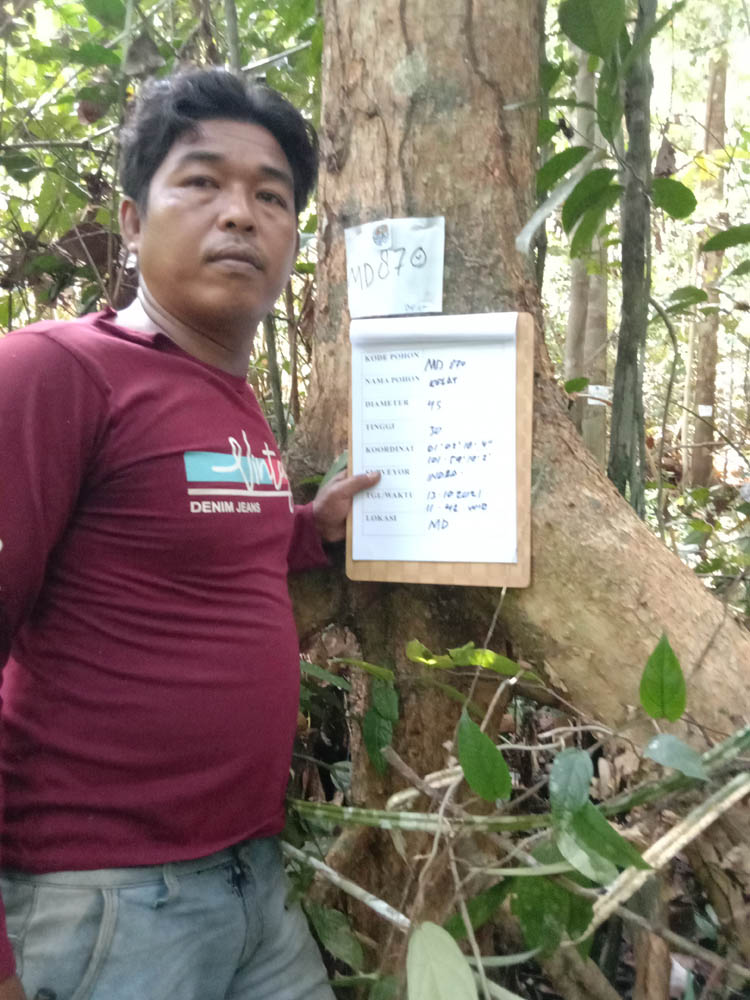 MD870
KODE POHON MD 870
NAMA POHON KELAT
DIAMETER 45
TINGGI 30
KOORDINAT 01°02'10.4"
101°59'10.2"
SURVEYOR INDRA
TGL/WAKTU 13.10.2021
11.42 WIB
LOKASI MD
DENIM JEANS